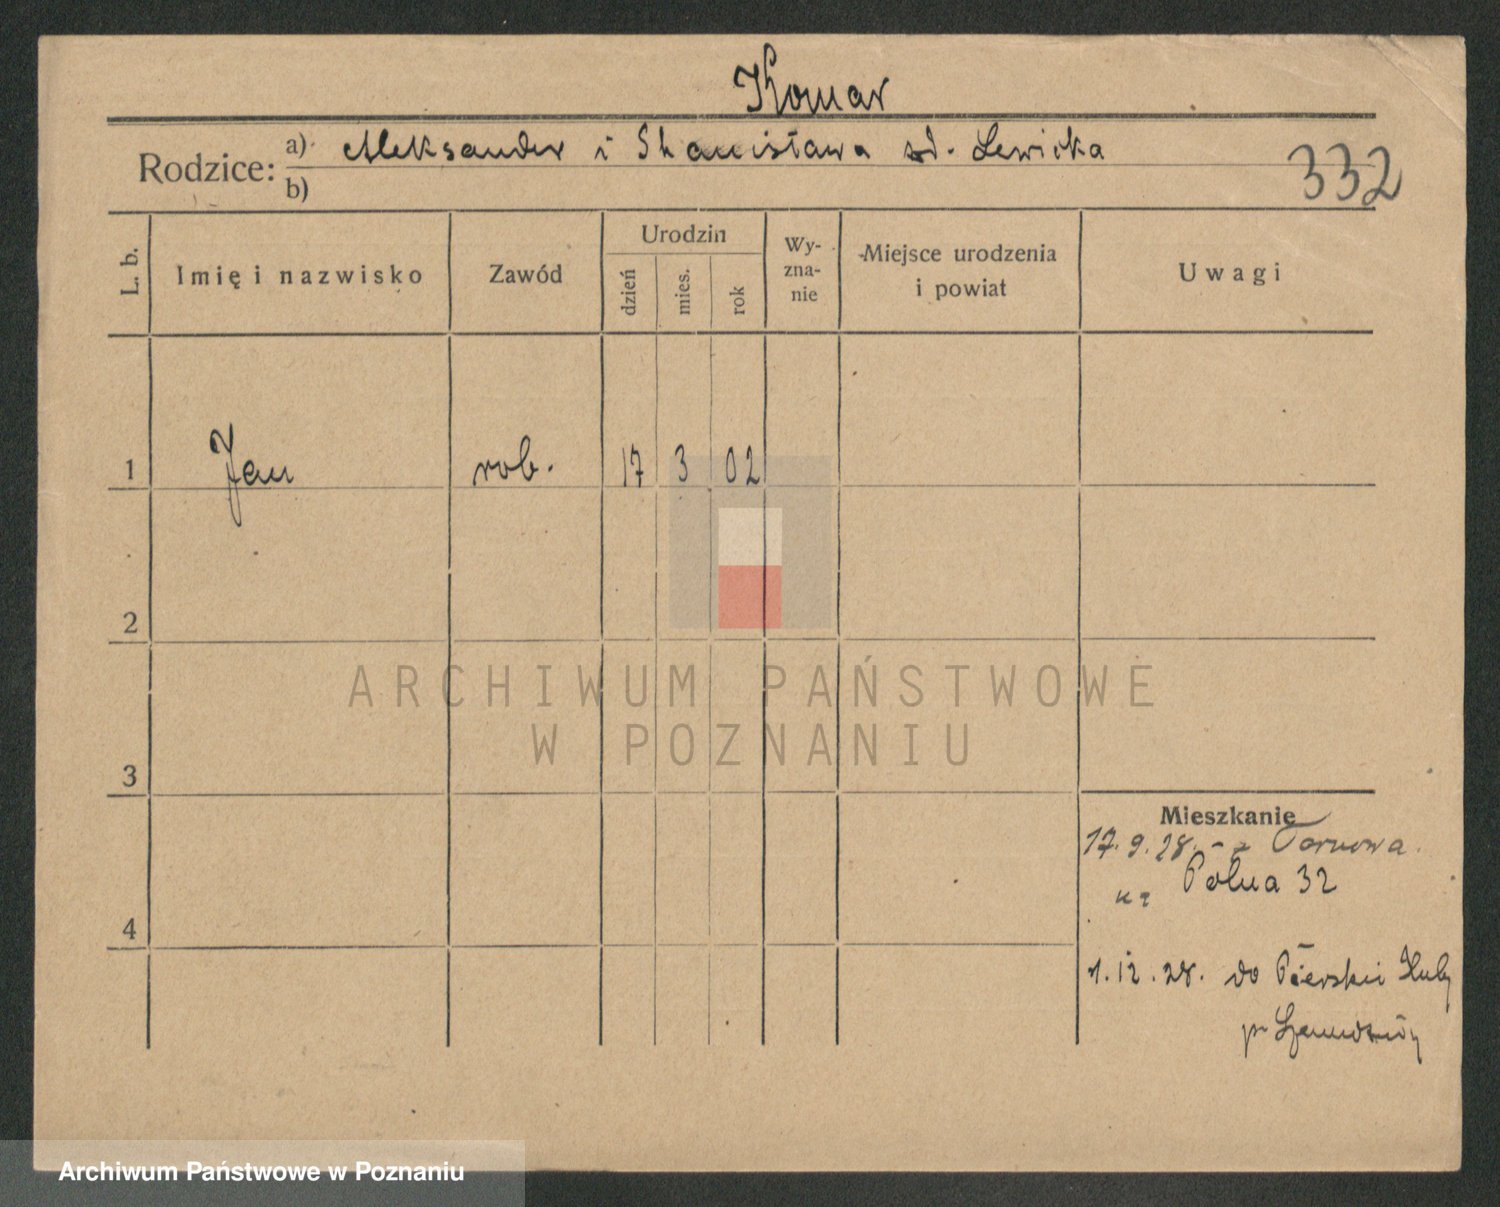 Komar
Rodzice: a) Aleksander i Stanisława zd. Lewicka
b)
332
L. b.
Imię i nazwisko
Zawód
Urodzin
dzień
mies.
rok
Wy-
zna-
nie
Miejsce urodzenia
i powiat
Uwagi
1 Jan rob. 17 3 02
2
ARCHIWUM PAŃSTWOWE
W POZNANIU
3
Mieszkanie
17. 9. 28. - z Tarnowa
na Polna 32
4
1. 12. 28. do Pierskie Huby
p.
Archiwum Państwowe w Poznaniu